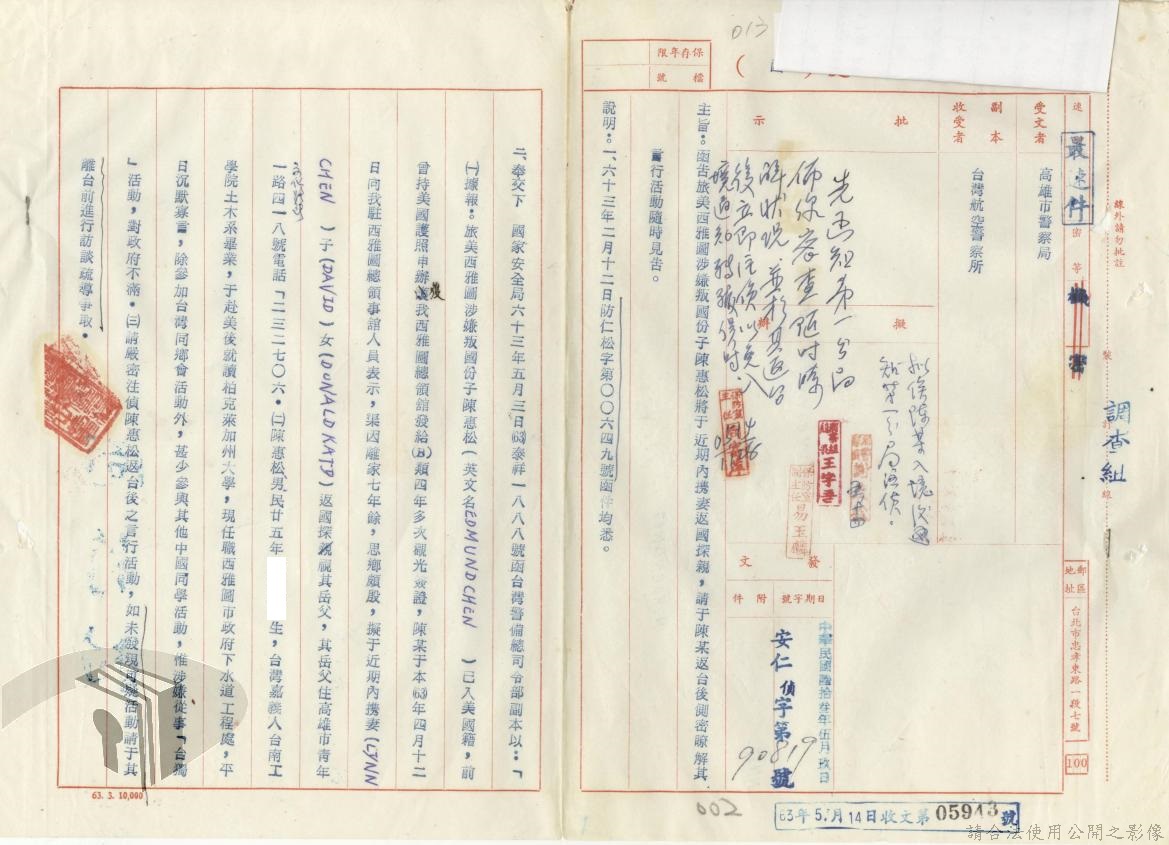 013
保存年限
檔號
線外請勿批註
速別
最速件
密等
機密
裝
訂
線
調查組
受文者
高雄市警察局
副本收受者
台灣航空警察所
批示
擬辦
擬俟陳某入境後通知第一分局注偵。
發文
日期字號
附件
中華民國陸拾叁年伍月玖日
安仁偵字第90819號
郵區地址
台北市忠孝東路一段七號
100
主旨:函告旅美西雅圖涉嫌叛國份子陳惠松將于近期內携妻返國探親,請于陳某返台後側密瞭解其
言行活動隨時見告。
說明:一、六十三年二月十二日防仁松字第〇〇六四九號函件均悉。
二、奉交下 國家安全局六十三年五月三日(63)泰祥一八八八號函台灣警備總司令部副本以:「
㈠據報:旅美西雅圖涉嫌叛國份子陳惠松(英文名EDMUND CHEN )已入美國籍,前
曾持美國護照申辦獲我西雅圖總領舘發給(B)類四年多次觀光簽證,陳某于本(63)年四月十二
日向我駐西雅圖總領事館人員表示,渠因離家七年餘,思鄉頗殷,擬于近期內携妻(LYNN
CHEN )子(DAVID)女(DUNALD KATP)返國探親視其岳父,其岳父住高雄市青年
一路四一八號電話「二三二七〇六。㈡陳惠松男民廿五年 生,台灣嘉義人台南工
學院土木系畢業,于赴美後就讀柏克萊加州大學,現任職西雅圖市政府下水道工程處,平
日沉默寡言,除參加台灣同鄉會活動外,甚少參與其他中國同學活動,惟涉嫌從事「台獨
」活動,對政府不滿。㈢請嚴密注偵陳惠松返台後之言行活動,如未發現可疑活動請于其
離台前進行訪談疏導爭取。
63. 3. 10,000
002
63年5月14日收文第05943號
請合法使用公開之影像